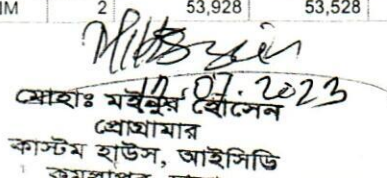 IM 2 53,928 53,528
12.07.2023
মোহাঃ মইনুর হোসেন
প্রোগ্রামার
কাস্টম হাউস, আইসিডি